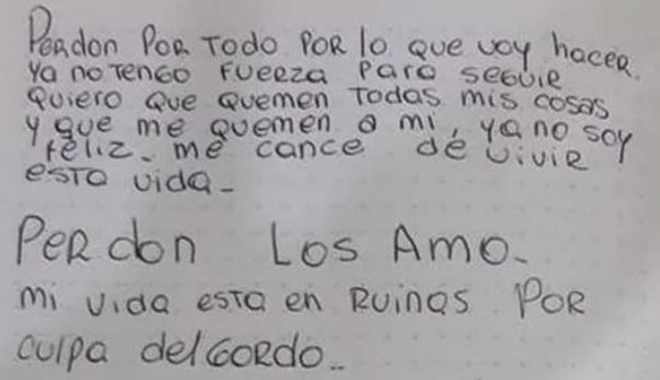 Perdon Por Todo Por lo que voy hacer.
Ya no Tengo Fuerza Para seguir
Quiero que quemen Todas mis cosas
y que me quemen a mi, ya no soy
feliz. me cance de vivir
esta vida.
Perdon Los Amo.
mi vida esta en Ruinas Por
culpa del Gordo.